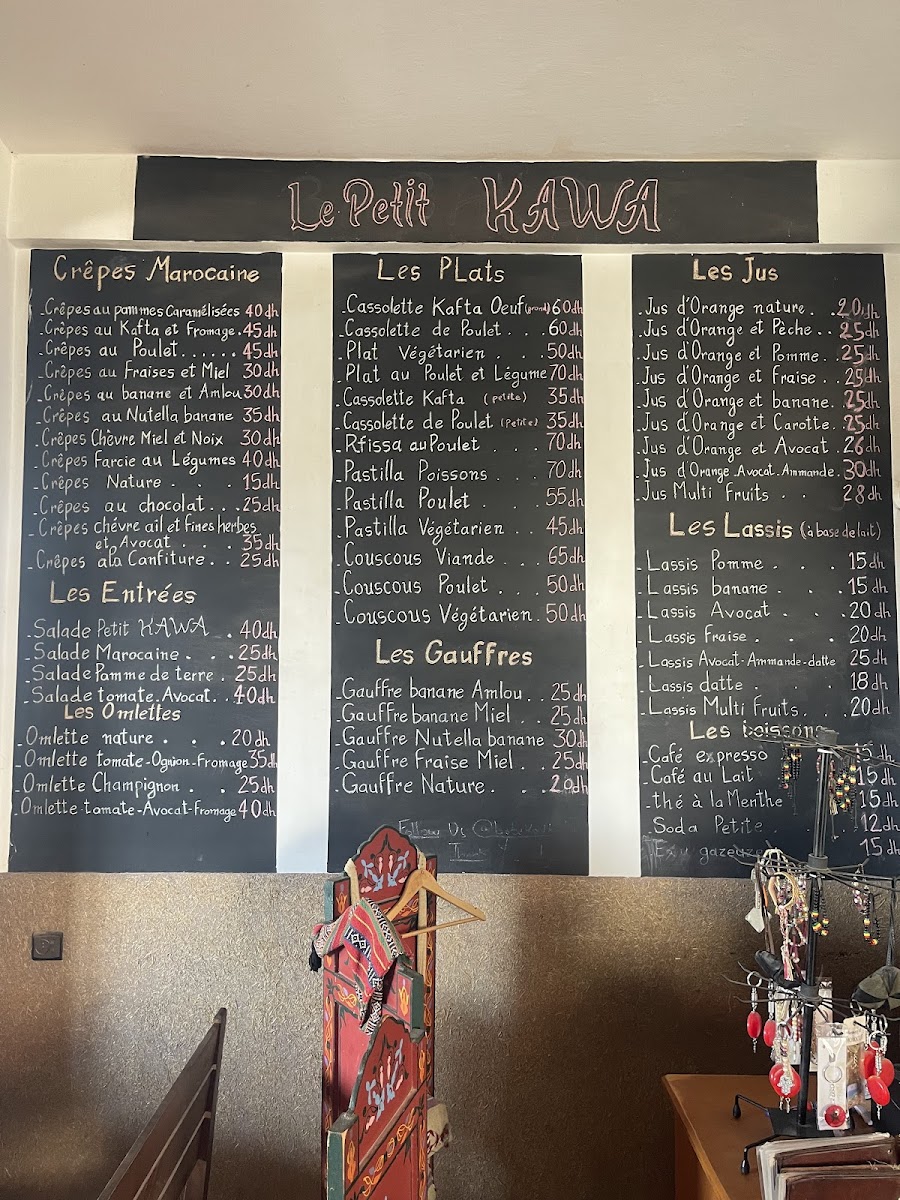 Le Petit KAWA
Crêpes Marocaine
- Crêpes au pommes Caramélisées 40 dh
- Crêpes au Kafta et Fromage . 45 dh
- Crêpes au Poulet...... 45 dh
- Crêpes au Fraises et Miel 30 dh
- Crêpes au banane et Amlou 30 dh
- Crêpes au Nutella banane 35 dh
- Crêpes Chèvre Miel et Noix 30 dh
- Crêpes Farcie au Légumes 40 dh
- Crêpes Nature . . . 15 dh
- Crêpes au chocolat... 25 dh
- Crêpes chévre ail et fines herbes
et Avocat . . . . 35 dh
- Crêpes a la Confiture . . 25 dh
Les Entrées
- Salade Petit KAWA . 40 dh
- Salade Marocaine . . . 25 dh
- Salade Pomme de terre . 25 dh
- Salade tomate.Avocat . . 40 dh
Les Omlettes
- Omlette nature . . . . 20 dh
- Omlette tomate-Ognion-Fromage 35 dh
- Omlette Champignon . . 25 dh
- Omlette tomate-Avocat-Fromage 40 dh
Les PLats
- Cassolette Kafta Oeuf (grand) 60 dh
- Cassolette de Poulet . . . 60 dh
- Plat Végétarien . . . 50 dh
- Plat au Poulet et Légume 70 dh
- Cassolette Kafta (petite) 35 dh
- Cassolette de Poulet (Petite) 35 dh
- Rfissa au Poulet . . . 70 dh
- Pastilla Poissons . . . 70 dh
- Pastilla Poulet . . . 55 dh
- Pastilla Végétarien . . 45 dh
- Couscous Viande . . . 65 dh
- Couscous Poulet . . . 50 dh
- Couscous Végétarien . 50 dh
Les Gauffres
- Gauffre banane Amlou . . 25 dh
- Gauffre banane Miel . . . 25 dh
- Gauffre Nutella banane 30 dh
- Gauffre Fraise Miel . . . 25 dh
- Gauffre Nature . . . . 20 dh
Follow Us
Les Jus
- Jus d'Orange nature . . 20 dh
- Jus d'Orange et Pêche . . 25 dh
- Jus d'Orange et Pomme . . 25 dh
- Jus d'Orange et Fraise . . 25 dh
- Jus d'Orange et banane . 25 dh
- Jus d'Orange et Carotte . 25 dh
- Jus d'Orange et Avocat . 26 dh
- Jus d'Orange.Avocat.Ammande . 30 dh
- Jus Multi Fruits . . . 28 dh
Les Lassis (à base de lait)
- Lassis Pomme . . . 15 dh
- Lassis banane . . . 15 dh
- Lassis Avocat . . . 20 dh
- Lassis Fraise . . . . 20 dh
- Lassis Avocat-Ammande-datte 25 dh
- Lassis datte . . . . 18 dh
- Lassis Multi Fruits . . . 20 dh
Les boissons
- Café expresso 15 dh
- Café au Lait 15 dh
- thé à la Menthe 15 dh
Soda Petite . . 12 dh
15 dh